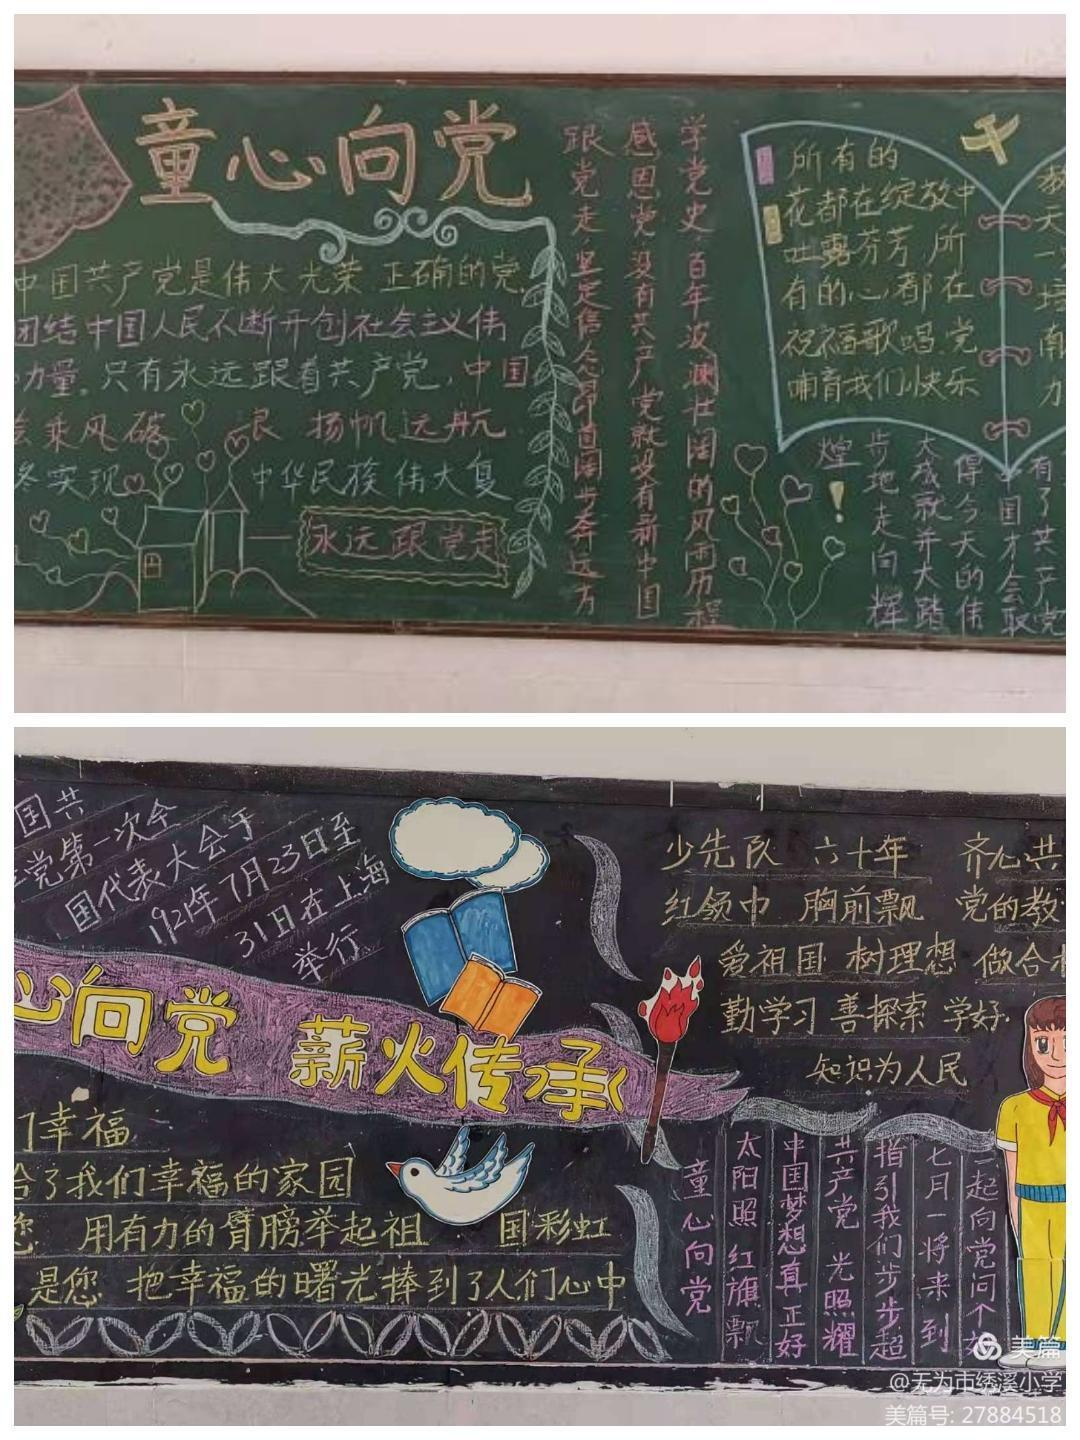 童心向党
中国共产党是伟大光荣 正确的党
团结中国人民不断开创社会主义伟
力量。只有永远跟着共产党,中国
会乘风破 浪 扬帆远航
实现 中华民族伟大复
永远跟党走
学党史,百年波澜壮阔的风雨历程
感恩党,没有共产党就没有新中国
跟党走,坚定信念昂首阔步奔远方
所有的
花都在绽放中
吐露芬芳,所
有的心,都在
祝福歌唱,党
哺育我们快乐
教
天
一
培
南
力
有了共产党
国才会取
得今天的伟
大成就并大踏
步地走向辉
煌!
国共
党第一次全
国代表大会于
1921年7月23日至
31日在上海
举行
心向党 薪火传承
们幸福
给了我们幸福的家园
您 用有力的臂膀举起祖 国彩虹
是您 把幸福的曙光捧到了人们心中
少先队 六十年 齐心共
红领巾 胸前飘 党的教
爱祖国 树理想 做合格
勤学习 善探索 学好
知识为人民
童心向党
太阳照 红旗飘
中国梦想真正好
共产党 光照耀
指引我们步步超
七月一将来到
一起向党问个好
美篇
@无为市绣溪小学
美篇号: 27884518